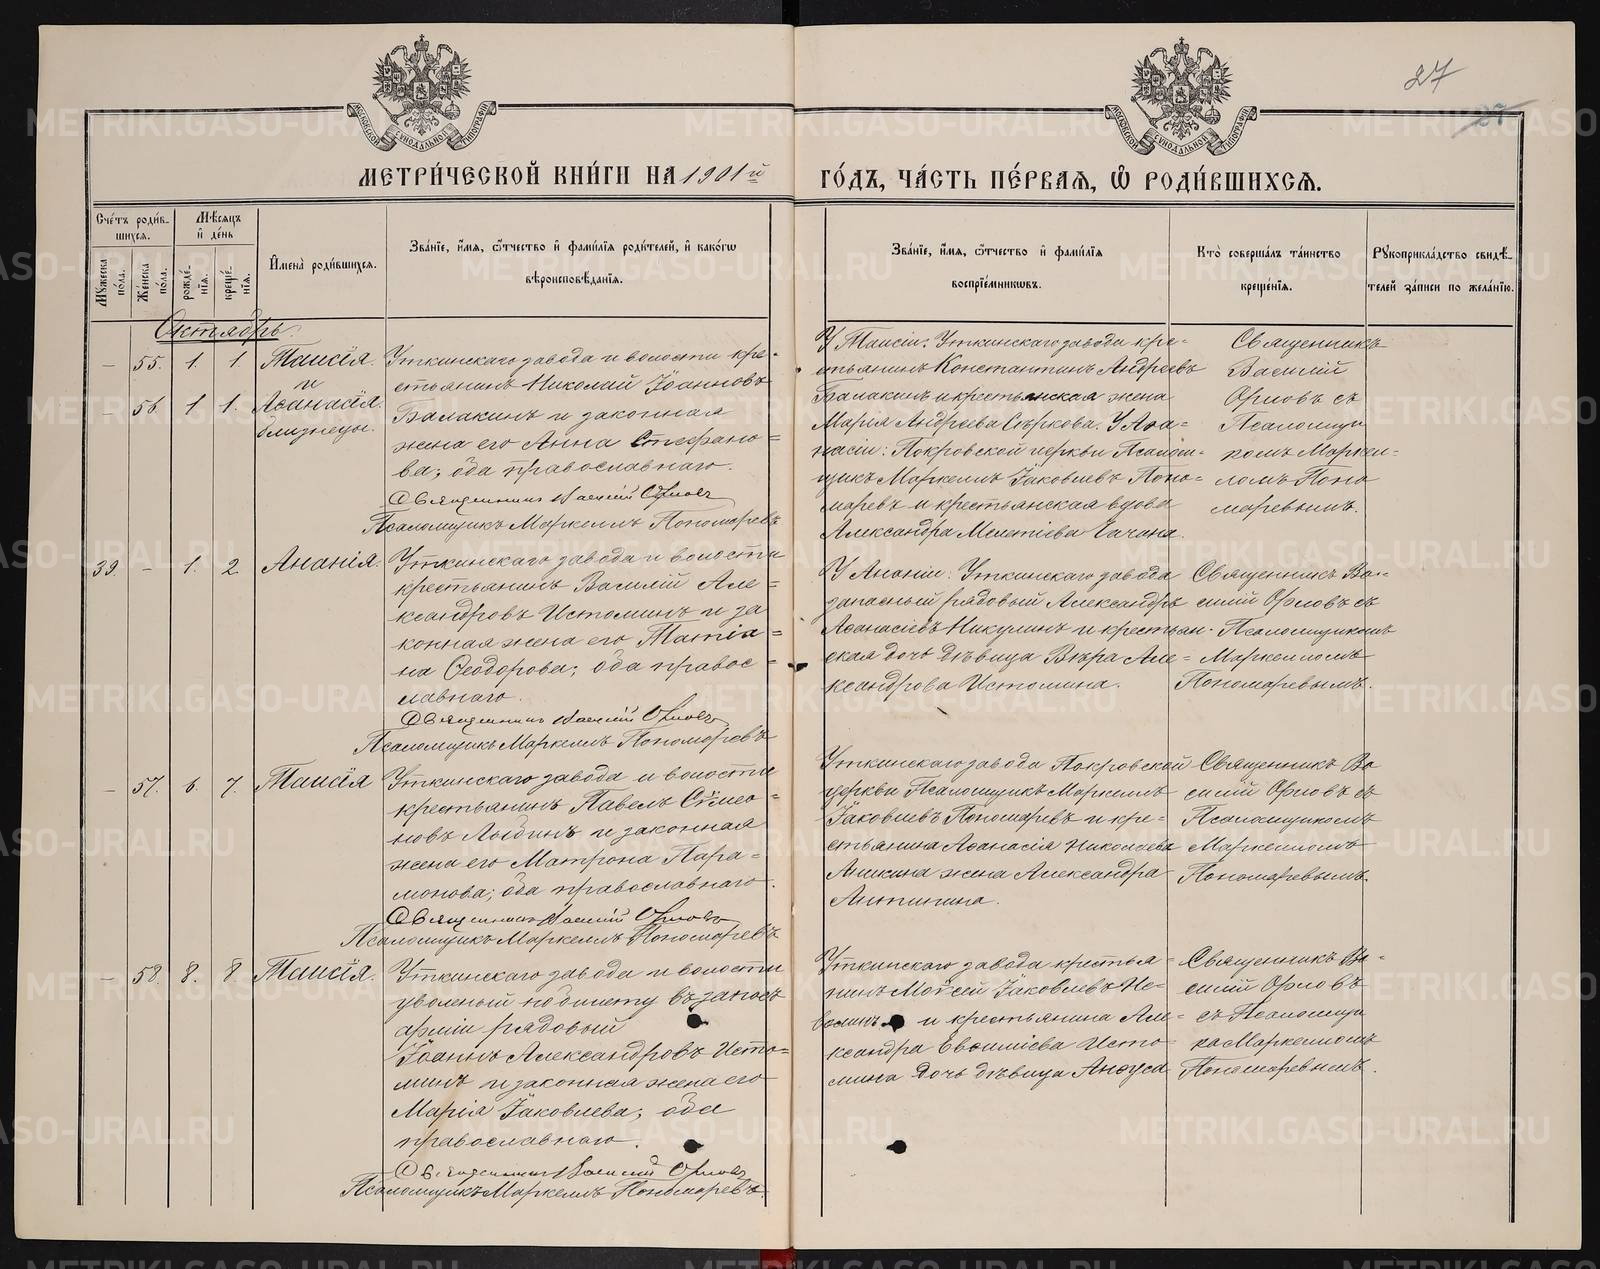 27
МЕТРИ́ЧЕСКОЙ КНИ́ГИ НА 1901й ГО́ДЪ, ЧА́СТЬ ПЕ́РВАѦ, Ѡ РОДИ́ВШИХСѦ.
Сче́тъ роди́вшихсѧ.
Мѣ́сѧцъ и де́нь
Имена̀ роди́вшихсѧ.
Зва́нїе, и́мѧ, ѻ́тчество и фами́лїѧ роди́телей, и како́гѡ
вѣроисповѣ́данїѧ.
Зва́нїе, и́мѧ, ѻ́тчество и фами́лїѧ
воспрїе́мникѡвъ.
Кто̀ соверша́лъ та́инство
креще́нїѧ.
Рꙋкоприкла́дство свидѣ́-
телей за́писи по жела́нїю.
Мꙋ́жеска по́ла.
Же́нска по́ла.
рожде́нїѧ.
креще́нїѧ.
Октябрь.
– 55. 1. 1. Таисія
и
– 56. 1 1. Аѳанасія.
близнецы.
Уткинскаго завода и волости кре-
стьянинъ Николай Іоанновъ
Балакинъ и законная
жена его Анна Стефано-
ва; оба православнаго.
Священникъ Василій Орловъ
Псаломщикъ Маркеллъ Пономаревъ
У Таисіи: Уткинскаго завода кре-
стьянинъ Константинъ Андреевъ
Балакинъ и крестьянская жена
Марія Андреева Сыркова. У Аѳа-
насіи: Покровской церкви Псалом-
щикъ Маркеллъ Іаковлевъ Поно-
маревъ и крестьянская вдова
Александра Мелетіева Чачина.
Священникъ
Василій
Орловъ съ
Псаломщи
комъ Маркел-
ломъ Поно
маревымъ.
39. – 1. 2 Ананія.
Уткинскаго завода и волости
крестьянинъ Василій Але-
ксандровъ Истоминъ и за
конная жена его Татіа-
на Ѳеодорова; оба правос-
лавнаго.
Священникъ Василій Орловъ
Псаломщикъ Маркеллъ Пономаревъ
У Ананіи: Уткинскаго завода
запасный рядовый Александръ
Аѳанасіевъ Никулинъ и крестьян-
ская дочь дѣвица Вѣра Але-
ксандрова Истомина.
Священникъ Ва-
силій Орловъ съ
Псаломщикомъ
Маркелломъ
Пономаревымъ.
– 57. 6. 7. Таисія
Уткинскаго завода и волости
крестьянинъ Павелъ Сѵмео-
новъ Лыбинъ и законная
жена его Матрона Пара-
монова; оба православнаго.
Священникъ Василій Орловъ
Псаломщикъ Маркеллъ Пономаревъ
Уткинскаго завода Покровской
церкви Псаломщикъ Маркеллъ
Іаковлевъ Пономаревъ и кре-
стьянина Аѳанасія Николаева
Аникина жена Александра
Священникъ Ва
силій Орловъ съ
Псаломщикомъ
Маркелломъ
Пономаревымъ.
– 58. 8. 8 Таисія.
Уткинскаго завода и волости
уволеный по билету въ запасъ
арміи рядовый
Іоаннъ Александровъ Исто-
минъ и законная жена его
Марія Іаковлева; оба
православнаго.
Священникъ Василій Орловъ
Псаломщикъ Маркеллъ Пономаревъ
Уткинскаго завода крестья-
нинъ Моѵсей Іаковлевъ Не-
волинъ и крестьянина Але-
ксандра Евѳиміева Исто
мина дочь дѣвица Анѳуса
Священникъ Ва-
силій Орловъ
съ Псаломщи
ка Маркелломъ
Пономаревымъ.
METRIKI.GASO-URAL.RU